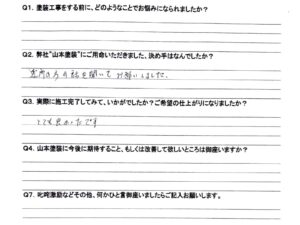 Q1. 塗装工事をする前に、どのようなことでお悩みになられましたか?
Q2. 弊社"山本塗装"にご用命いただきました、決め手はなんでしたか?
の方の話を聞いてお願いしました。
Q3. 実際に施工完了してみて、いかがでしたか?ご希望の仕上がりになりましたか?
とても良かったです
Q4. 山本塗装に今後に期待すること、もしくは改善して欲しいところは御座いますか?
Q7. 叱咤激励などその他、何かひと言御座いましたらご記入お願いします。